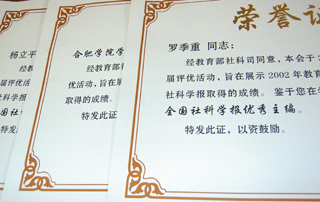 杨立平
届评优
社科学报
合肥学院学
经教育部
届评优活动,旨在
报取得的成绩。
特发此证
荣誉证
罗季重 同志:
经教育部社科司同意,本会于2
届评优活动,旨在展示 2002 年教育
社科学报取得的成绩。鉴于您在学
全国社科学报优秀主编。
特发此证,以资鼓励。